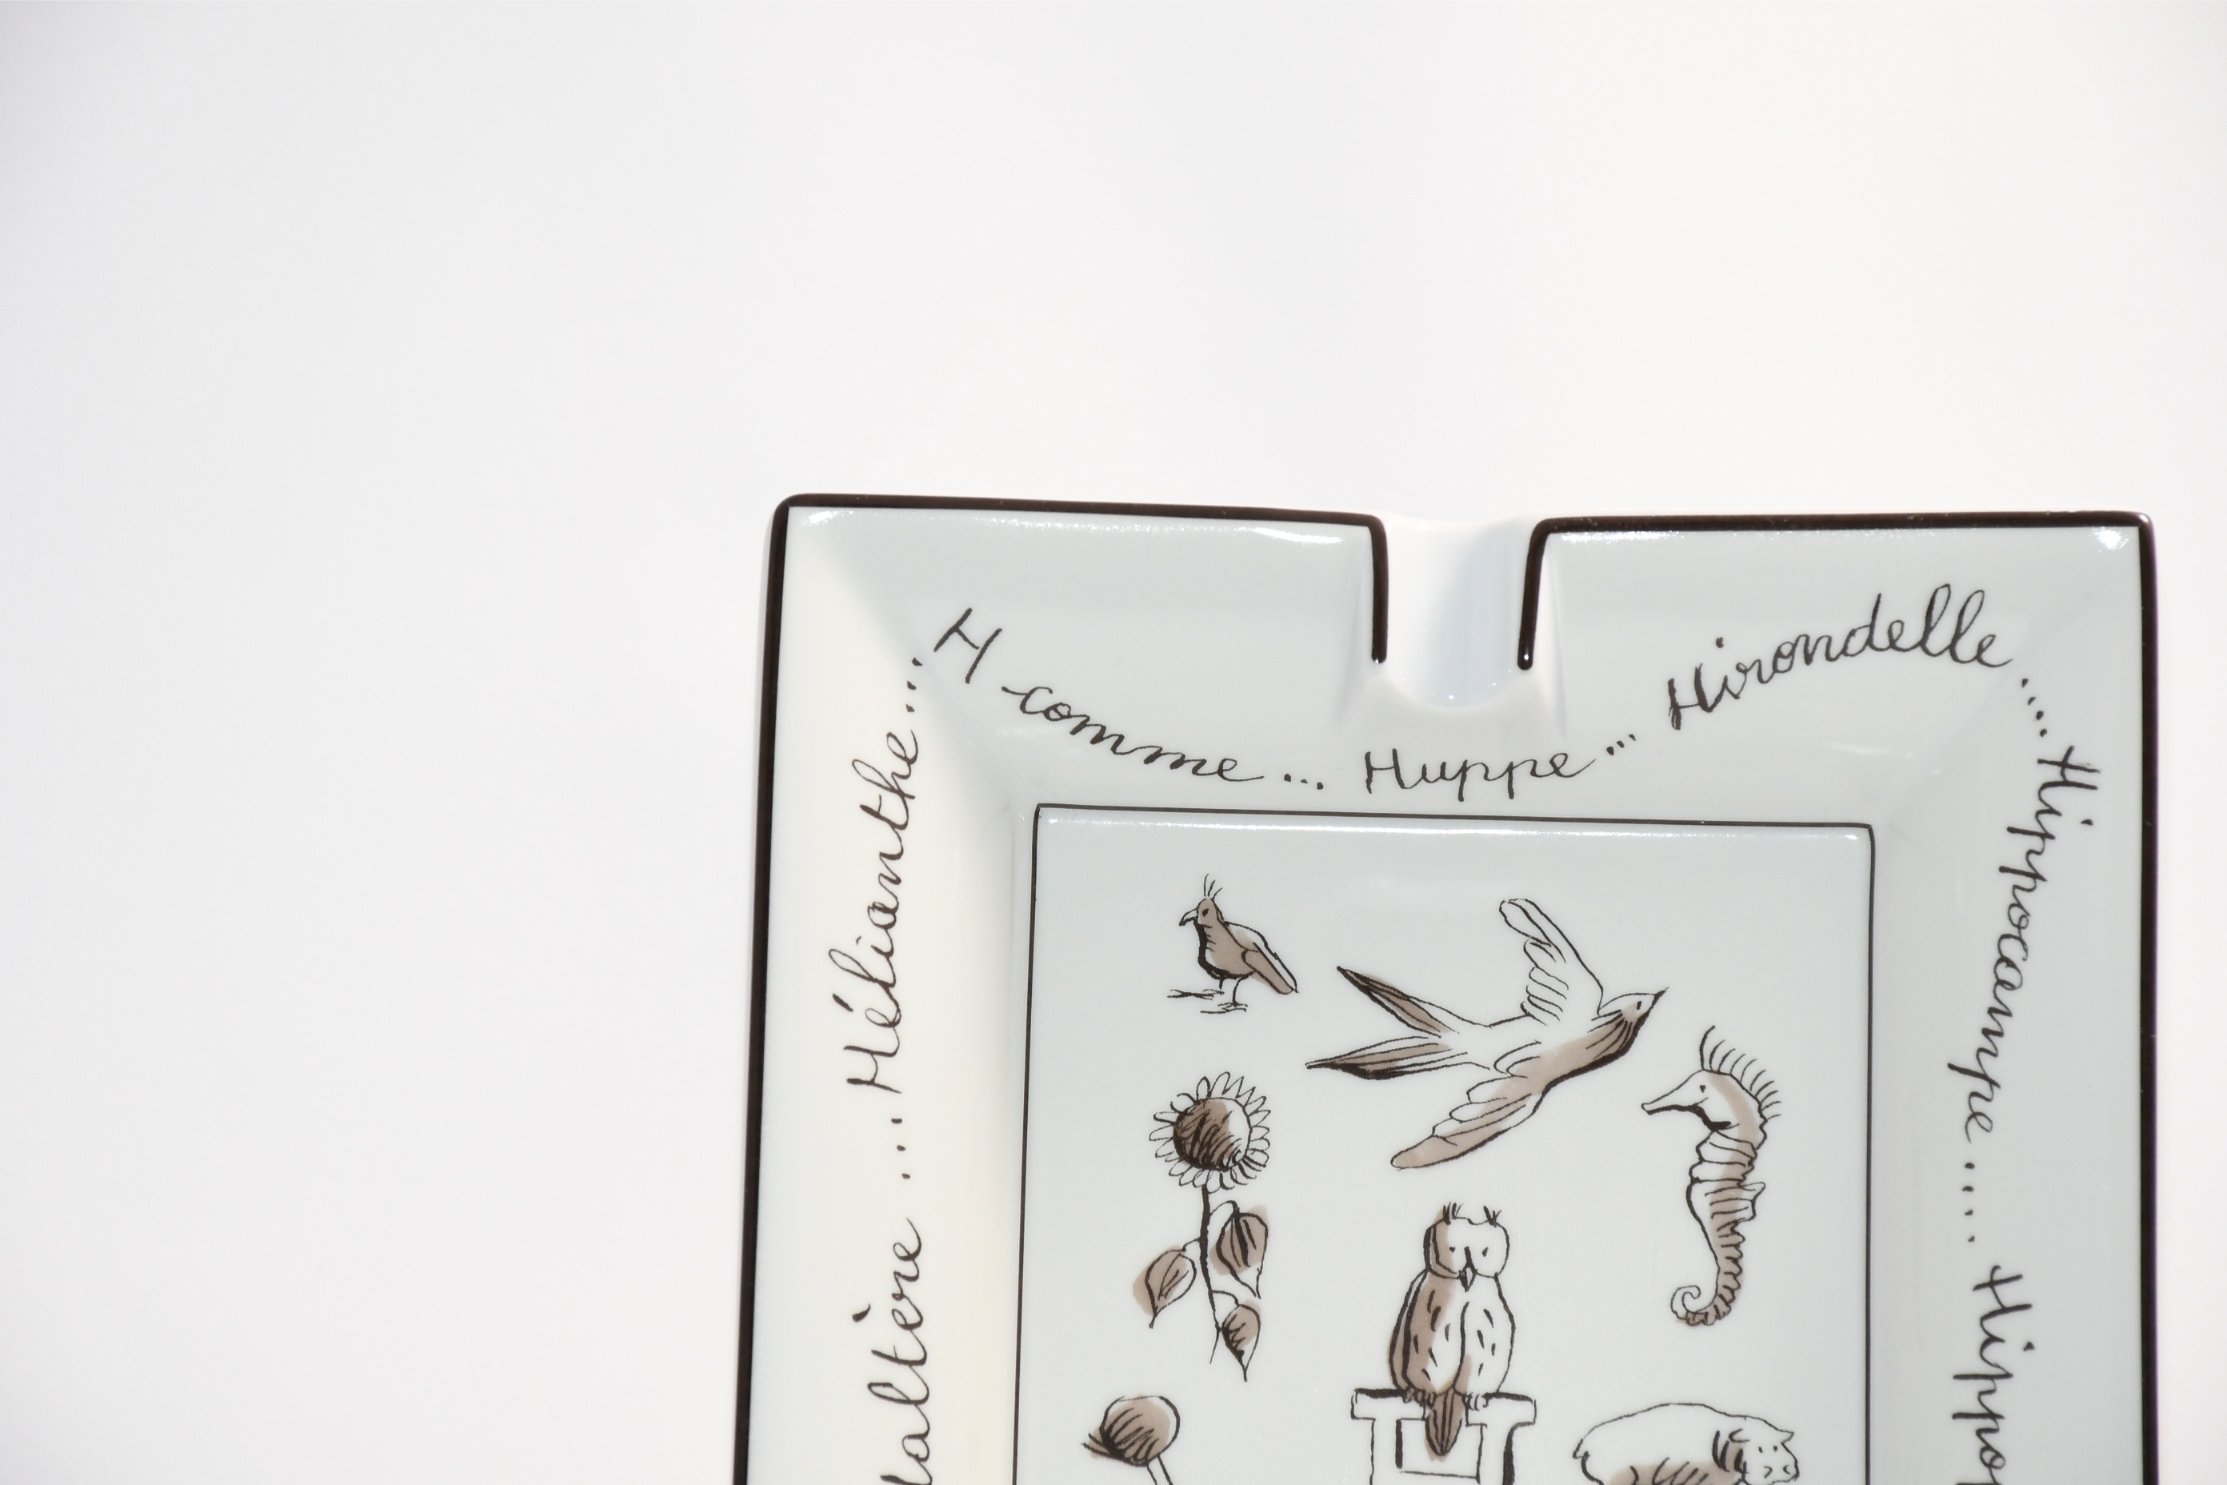 H comme... Huppe... Hirondelle....
Hippocampe.... Hippo
altère... Hélianthe...